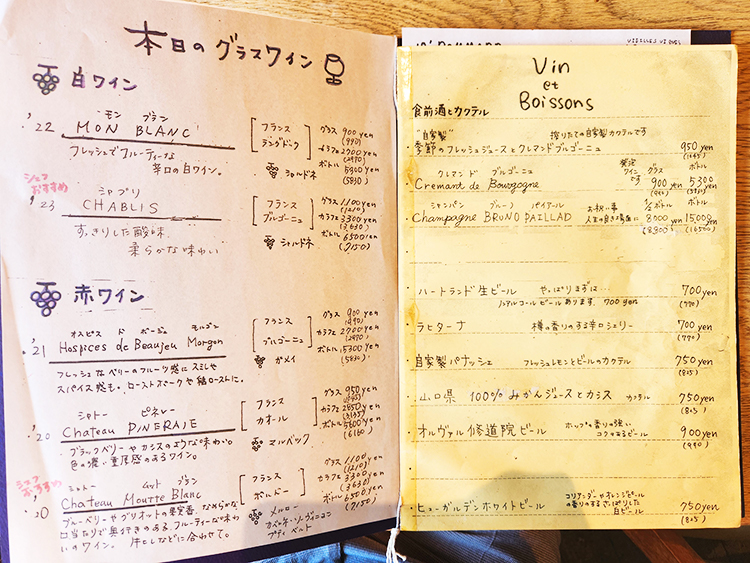 本日のグラスワイン
白ワイン
モン ブラン
'22 MON BLANC
フレッシュでフルーティーな
辛口の白ワイン。
フランス
ラングドック
シャルドネ
グラス 900yen
(990)
カラフェ 2700yen
(2970)
ボトル 5300yen
(5830)
シェフ
おすすめ
シャブリ
'23 CHABLIS
すっきりした酸味
柔らかな味わい
フランス
ブルゴーニュ
シャルドネ
グラス 1,100yen
(1210)
カラフェ 3,300yen
(3,630)
ボトル 6500yen
(7150)
赤ワイン
オスピス ド ボージュ モルゴン
'21 Hospices de Beaujeu Morgon
フレッシュなベリーのフルーツ感にスミレや
スパイス感も。ローストポークや鶏ローストに。
フランス
ブルゴーニュ
ガメイ
グラス 900yen
(990)
カラフェ 2700yen
(2970)
ボトル 5300yen
(5830)
シャトー ピネレー
'20 Chateau PINERAIE
ブラックベリーやカシスのような味わい
色の濃い重厚感のあるワイン。
フランス
カオール
マルベック
グラス 950yen
カラフェ 2850yen
(3135)
ボトル 5600yen
(6160)
シェフ
おすすめ
シャトー ムット ブラン
'20 Chateau Moutte Blanc
ブルーベリーやグリオットの果実香、なめらかな
口当たりで奥行きのある、フルーティーな味わ
いのワイン。 牛とじなどに合わせて。
フランス
ボルドー
メルロー
カベルネ・ソーヴィニヨン
プティ ベルド
グラス 1,100yen
(1210)
カラフェ 3300yen
(3630)
ボトル 6,500yen
(7150)
Vin
et
Boissons
食前酒とカクテル
"自家製" 搾りたての自家製カクテルです
季節のフレッシュジュースとクレマンドブルゴーニュ 950yen
(1045)
クレマン ド ブルゴーニュ 発泡ワインです グラス ボトル
Cremant de Bourgogne 900yen 5300yen
(990) (5830)
シャンパン ブルーノ パイアール お祝い事 1/2ボトル ボトル
Champagne BRUNO PAILLAD 人生の良き場面に 8000yen 15,000yen
(8800) (16500)
ハートランド生ビール やっぱりまずは… 700yen
ノンアルコールビールあります。700yen (770)
ラ ビターナ 樽の香りのする辛口シェリー 700yen
(770)
自家製パナッシェ フレッシュレモンとビールのカクテル 750yen
(825)
山口県 100%みかんジュースとカシス カクテル 750yen
(825)
オルヴァル修道院ビール ホップの香りの強い
コクのあるビール 900yen
(990)
ヒューガルデンホワイトビール コリアンダーやオレンジピール
の香りのするさっぱりした
白ビール 750yen
(825)